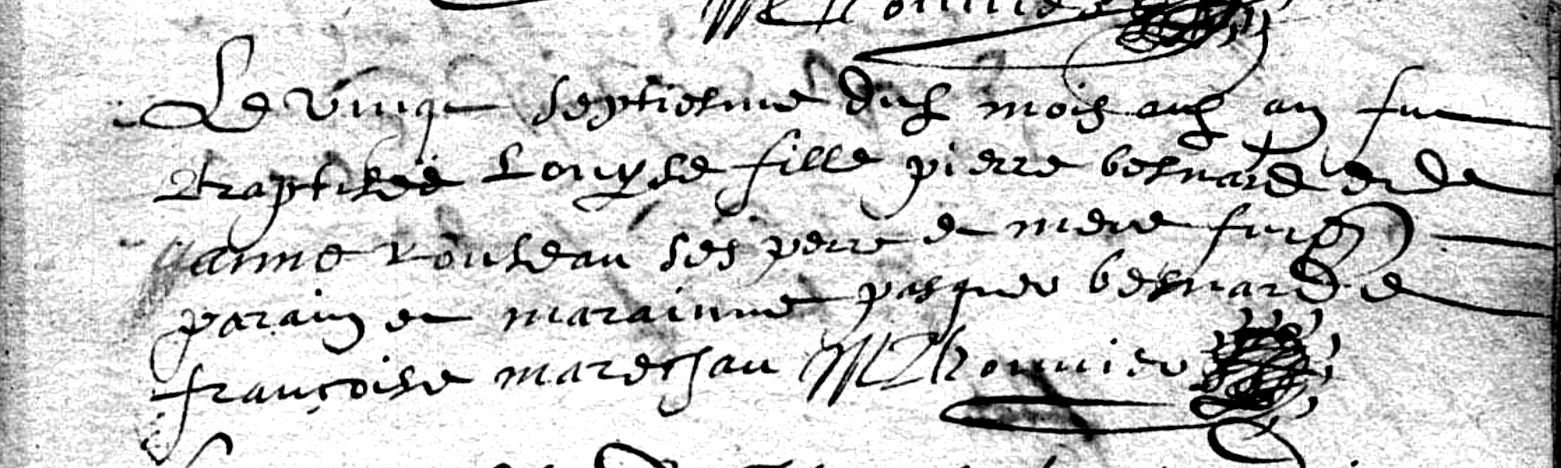 Le vingt septiesme dud mois aud an fut
baptisée Louyse fille pierre besnard et de
Janne rouseau ses pere et mere furent
parain et marainne pasquer besnard et
françoise marechau